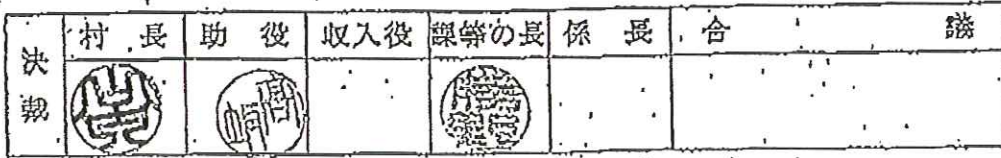 決裁 村長 助役 収入役 課等の長 係長 合議